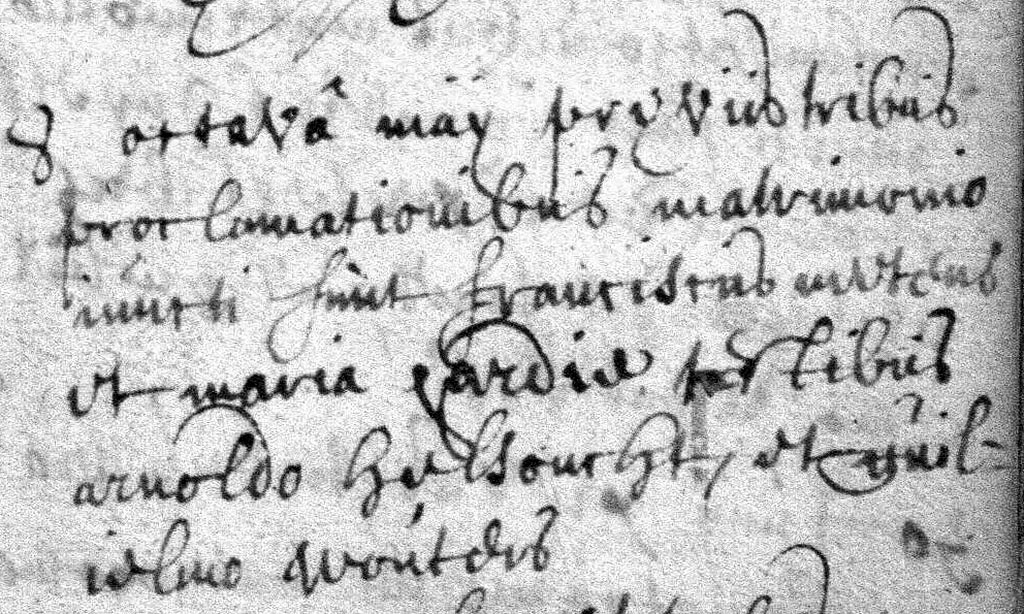 8 octavâ maij præviis tribus
proclamationibus matrimonio
iuncti sunt franciscus mertens
et maria gardie testibus
arnoldo helsoucht, et guil-
ielmo wouters